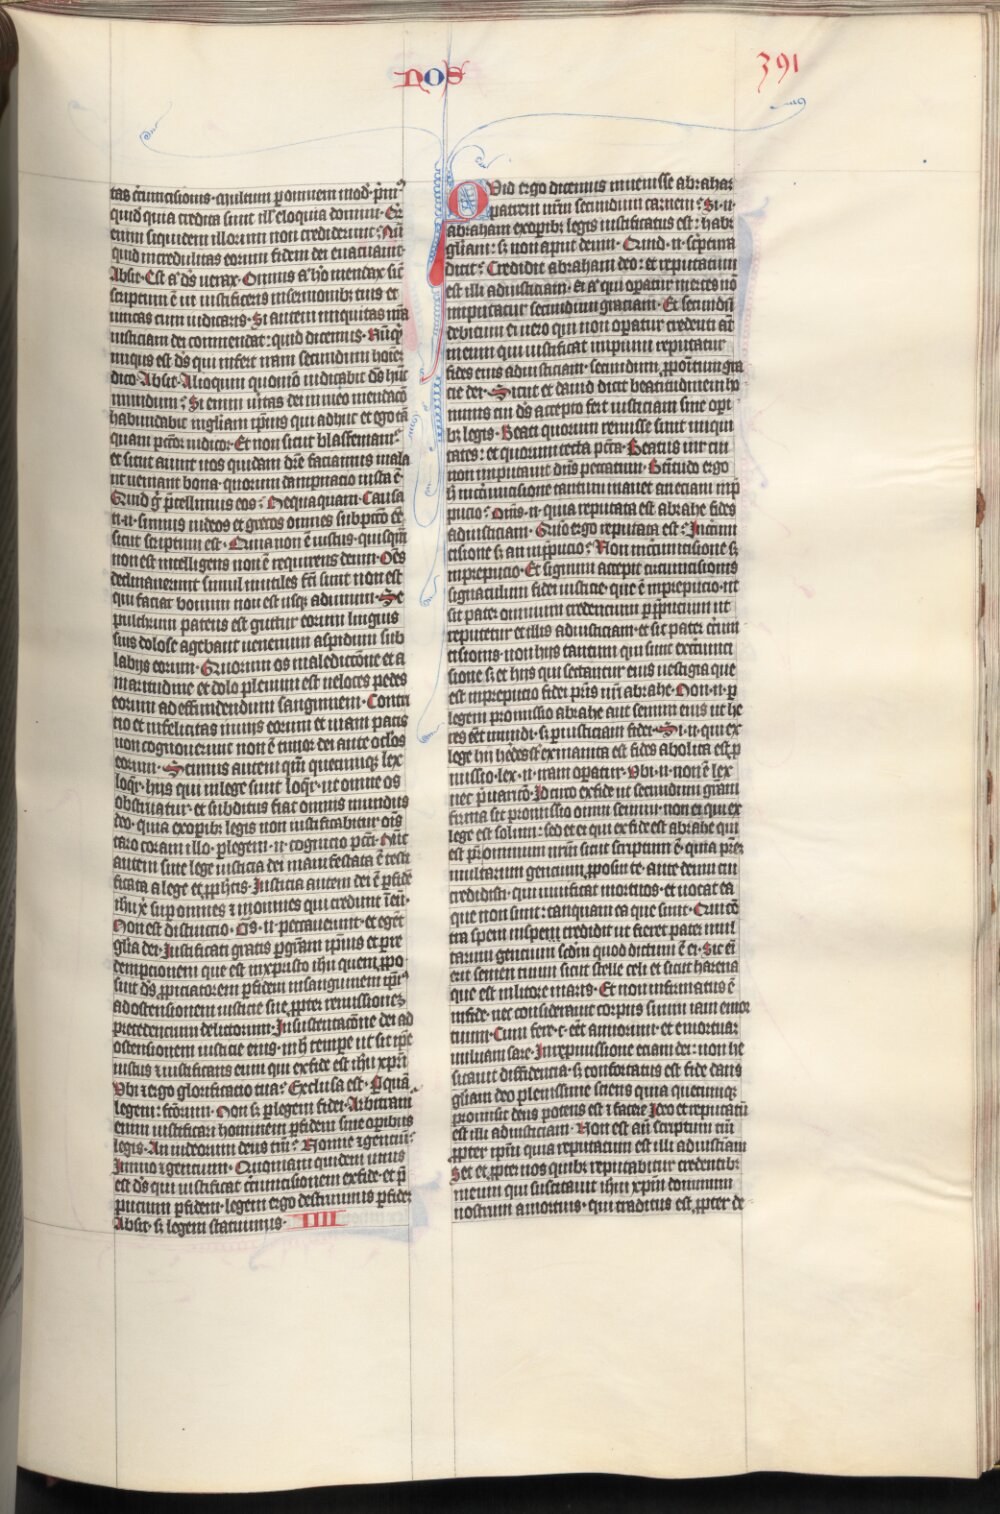 nos
391
tas c̄umcisionis· Multum ꝑ omnem mod̄· p̄mū
quid̄ quia credita sunt ill̓ eloquia domini· Q̄
enim siquidem illorum non crediderunt· Nū
quid incredulitas eorum fidem dei euacuauit·
Absit· Est a̓ ds̄ uerax· Omnis a̓ hō mendax sic̄
scriptum ē ut iustificeris in sermonibꝫ tuis et
uincas cum iudicaris· Si autem iniquitas nr̄a
iusticiam dei commendat: quid dicemus· Nūqͥd
iniquus est ds̄ qui infert iram secundum hoīeꝫ
dico· Absit· Alioquin quomō iudicabit ds̄ hūc
mundum? Si enim ū̓itas dei in meo mendacō
habundauit in gl̓iam ip̄ius quid adhuc et ego tā
quam pctōr iudicor· Et non sicut blasfemamᷣ
et sicut aiunt nos quidam dic̄e faciamus mala
ut ueniant bona· quorum dampnacio iusta ē·
Quid g̊ p̄cellimus eos? Nequaquam· Causa
ti· ii· sumus iudeos et grecos omnes sub pctō eē
sicut scriptum est· Quia non ē iustus· quisqͣm
non est intelligens non ē requirens deum· Oēs
declinauerunt simul inutiles fc̄i sunt non est
qui faciat bonum non est usqꝫ ad unum· Se
pulchrum patens est guttur eorum linguis
suis dolose agebant uenenum aspidum sub
labijs eorum· Quorum os maledictōne et a
maritudine et dolo plenum est ueloces pedes
eorum ad effundendum sanguinem· Contri
tio et infelicitas in uijs eorum et uiam pacis
non cognouerunt non ē timor dei ante ocl̓os
eorum· Scimus autem qm̄ quecumqꝫ lex
loqͥr· hijs qui in lege sunt loqͥr· ut omne os
obstruatur· et subditus fiat omnis mundus
deo· quia ex opibꝫ legis non iustificabitur oīs
caro coram illo· ꝑ legem· n̄· cognicio pctī· Nūc
autem sine lege iusticia dei manifestata ē testi
ficata a lege et ꝓph̄etis· Iusticia autem dei ē ꝑ fidē
ih̄u xp̄i suꝑ omnes ⁊ in omnes qui credunt ī eū·
Non est distinctio· Oēs· n̄· peccauerunt· et egēt
gl̓ia dei· Iustificati gratis ꝑ gr̄am ip̄ius et ꝑ re
dempcionem que est in xpristo ih̄u quem ꝓpo
suit ds̄ ꝓpiciatorem ꝑ fidem in sanguinem ip̄iᷣ
ad ostensionem iusticie sue ꝓpter remissioneꝫ
precedencium delictorum· In sustentacōne dei ad
ostensionem iusticie eius· in h̄ tempe ut sit ip̄e
iustus ⁊ iustificans eum qui ex fide est ih̄u xpr̄i
Vbi ⁊ ergo glorificatio tua? Exclusa est· P̱ quā
legem: fc̄orum· Non sꝫ ꝑ legem fidei· Arbitram̄
enim iustificari hominem ꝑ fidem sine operibus
legis· An iudeorum deus tm̄? Nonne ⁊ gencium?
Immo ⁊ gencium· Quoniam quidem unus
est ds̄ qui iustificat c̄umcisionem ex fide· et p̄
pucium ꝑ fidem· legem ergo destruimus ꝑ fideꝫ
Absit· sꝫ legem statuimus· IIII
QVid ergo dicemus inuenisse abrahaꝫ
patrem nr̄m secundum carnem? Si· n̄·
abraham ex opibꝫ legis iustificatus est: habꝫ
gl̓iam: sꝫ non aput deum· Quid· n̄· sc̓ptura
dicit? Credidit abraham deo: et reputatum
est illi ad iusticiam· ei a̓ qui opatur merces nō
imputatur secundum graciam· Et secundū
debitum ei uero qui non opatur credenti aūt
in eum qui iustificat impium reputatur
fides eius ad iusticiam· secundum ꝓpoītum gra
cie dei· Sicut et dauid dicit beatitudinem ho
minis cui ds̄ accepto fert iusticiam sine opi
bꝫ legis· Beati quorum remisse sunt iniqui
tates: et quorum tecta pctā· Beatus uir cui
non imputauit dn̄s peccatum· Btītudo ergo
h̄ in c̄umcisione tantum manet an eciam in p̄
pucio? Dīmꝰ· n̄· quia reputata est abrahe fides
ad iusticiam· Quō ergo reputata est? In c̄um
cisione sꝫ an in p̄pucio? Non in c̄umcisione sꝫ
in prepucio· Et signum accepit circumcisionis
signaculum fidei iusticie· que ē in prepucio· ut
sit pater omnium credencium ꝑ p̄pucium ut
reputetur et illis ad iusticiam· et sit pater c̄cum
cisionis· non hijs tantum qui sunt ex c̄umci
sione sꝫ et hijs qui sectantur eius uestigia que
est in prepucio fidei pr̄is nr̄i abrahe· Non· n̄· ꝑ
legem promissio abrahe aut semini eius ut he
res eēt mundi· sꝫ ꝑ iusticiam fidei· Si· n̄· qui ex
lege hij hēdes s̄t exinanita est fides abolita est ꝓ
missio· lex· n̄· iram opatur· Vbi· n̄· non ē lex
nec p̄uaricō· Idcirco ex fide ut secundum grām
firma sit promissio omni semini· non ei qui ex
lege est solum: sed et ei qui ex fide est abrahe qui
est pr̄ omnium nr̄m sicut scriptum ē· quia pr̄eꝫ
multarum gencium ꝓposui te· ante deum cui
credidisti· qui uiuificat mortuos· et uocat ea
que non sunt: tanquam ea que sunt· Qui cō
tra spem in spem credidit ut fieret pater mul
tarum gencium scd̄m quod dictum ē ei· Sic ei̓
erit semen tuum sicut stelle celi et sicut harena
que est in litore maris· Et non infirmatus ē
in fide· nec considerauit corpus suum iam emor
tuum· Cum fere· c· eēt annorum· et emortuā
uuluam sare· In repmissione eciam dei: non he
sitauit diffidencia· sꝫ confortatus est fide dans
gl̓iam deo plenissime sciens quia quecumqꝫ
promisit deus potens est ⁊ facere Ideo et reputatū
est illi ad iusticiam· Non est aūt scriptum tm̄
ꝓpter ip̄m quia reputatum est illi ad iusticiam
Set et ꝓpter nos quibꝫ reputabitur credentibꝫ
in eum qui suscitauit ih̄m xpr̄m dominum
nostrum a mortuis· qui traditus est ꝓpter de